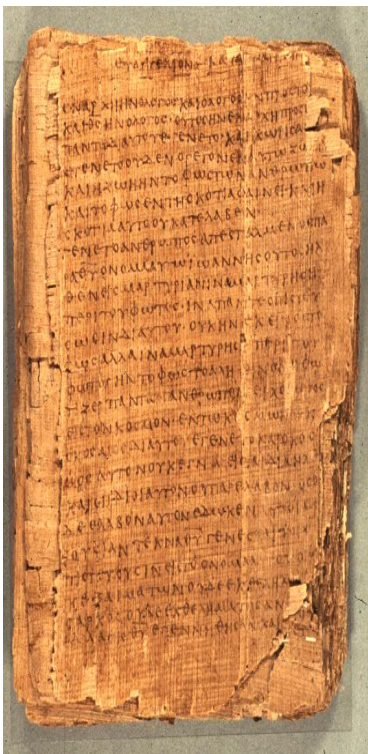 ΕΥΑΓΓΕΛΙΟΝ ΚΑΤΑ
ΕΝ ΑΡΧΗ ΗΝ Ο ΛΟΓΟΣ ΚΑΙ Ο ΛΟΓΟΣ ΗΝ ΠΡΟΣ ΤΟ
ΚΑΙ ΘΣ ΗΝ Ο ΛΟΓΟΣ ΟΥΤΟΣ ΗΝ ΕΝ ΑΡΧΗ ΠΡΟΣ
ΠΑΝΤΑ ΔΙ ΑΥΤΟΥ ΕΓΕΝΕΤΟ ΚΑΙ ΧΩΡΙΣ
ΕΓΕΝΕΤΟ ΟΥΔΕΝ Ο ΓΕΓΟΝΕΝ ΕΝ ΑΥΤΩ ΖΩ
ΚΑΙ Η ΖΩΗ ΗΝ ΤΟ ΦΩΣ ΤΩΝ ΑΝΘΡΩΠΩ
ΚΑΙ ΤΟ ΦΩΣ ΕΝ ΤΗ ΣΚΟΤΙΑ ΦΑΙΝΕΙ ΚΑΙ Η
ΣΚΟΤΙΑ ΑΥΤΟ ΟΥ ΚΑΤΕΛΑΒΕΝ
ΕΓΕΝΕΤΟ ΑΝΘΡΩΠΟΣ ΑΠΕΣΤΑΛΜΕΝΟΣ ΠΑ
ΡΑ ΘΥ ΟΝΟΜΑ ΑΥΤΩ ΙΩΑΝΝΗΣ ΟΥΤΟΣ ΗΛ
ΘΕΝ ΕΙΣ ΜΑΡΤΥΡΙΑΝ ΙΝΑ ΜΑΡΤΥΡΗΣΗ
ΠΕΡΙ ΤΟΥ ΦΩΤΟΣ ΙΝΑ ΠΑΝΤΕΣ ΠΙΣΤΕΥ
ΣΩΣΙΝ ΔΙ ΑΥΤΟΥ ΟΥΚ ΗΝ ΕΚΕΙΝΟΣ ΤΟ
ΦΩΣ ΑΛΛΑ ΙΝΑ ΜΑΡΤΥΡΗΣΗ ΠΕΡΙ ΤΟΥ
ΦΩΤΟΣ ΗΝ ΤΟ ΦΩΣ ΤΟ ΑΛΗΘΙΝΟΝ Ο ΦΩ
ΤΙΖΕΙ ΠΑΝΤΑ ΑΝΘΡΩΠΟΝ
ΕΙΣ ΤΟΝ ΚΟΣΜΟΝ ΕΝ ΤΩ ΚΟΣΜΩ ΗΝ
ΚΟΣΜΟΣ ΔΙ ΑΥΤΟΥ ΕΓΕΝΕΤΟ ΚΑΙ Ο ΚΟΣ
ΜΟΣ ΑΥΤΟΝ ΟΥΚ ΕΓΝΩ ΕΙΣ ΤΑ ΙΔΙΑ ΗΛΘΕ
ΚΑΙ ΟΙ ΙΔΙΟΙ ΑΥΤΟΝ ΟΥ ΠΑΡΕΛΑΒΟΝ ΟΣΟΙ
ΔΕ ΕΛΑΒΟΝ ΑΥΤΟΝ ΕΔΩΚΕΝ ΑΥΤΟΙΣ Ε
ΞΟΥΣΙΑΝ ΤΕΚΝΑ ΘΥ ΓΕΝΕΣΘΑΙ
ΠΙΣΤΕΥΟΥΣΙΝ ΕΙΣ ΤΟ ΟΝΟΜΑ
ΟΥΚ ΕΞ ΑΙΜΑΤΩΝ ΟΥΔΕ ΕΚ
ΣΑΡΚΟΣ ΟΥΔΕ ΕΚ ΘΕΛΗΜΑΤΟΣ
ΑΛΛΑ ΕΚ ΘΥ ΕΓΕΝΝΗΘΗΣΑΝ ΚΑΙ